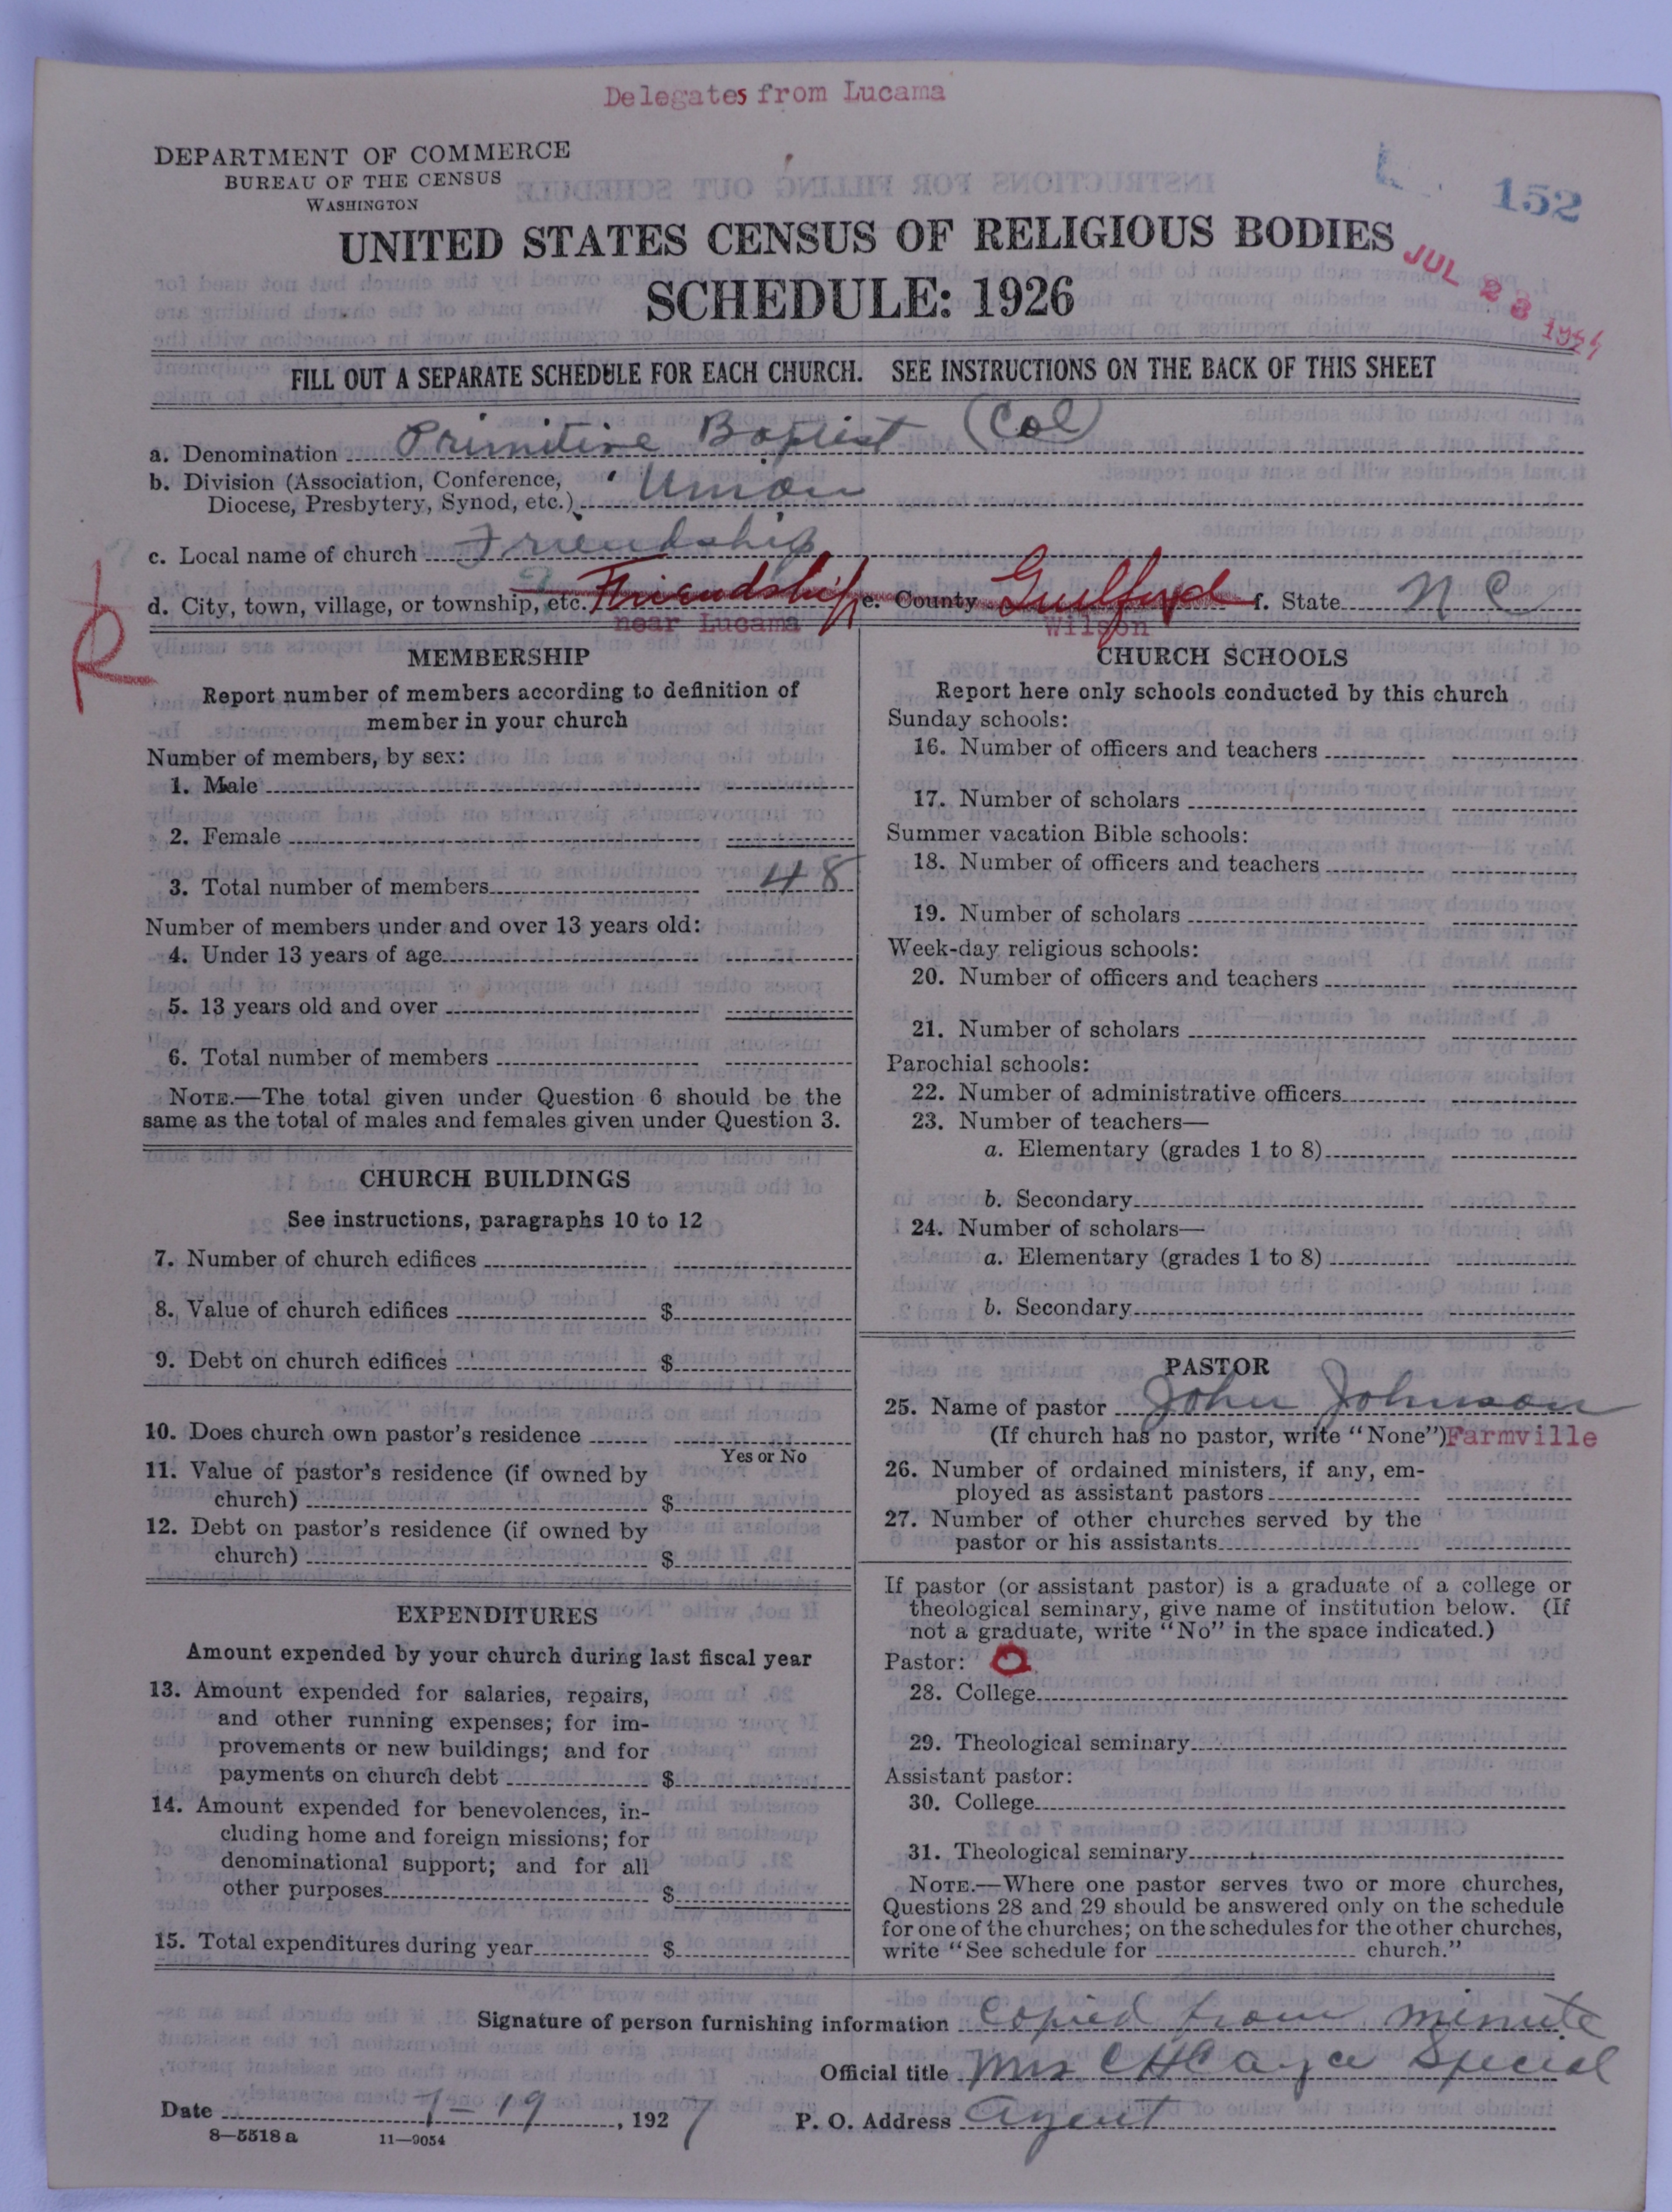 Delegates from Lucama
DEPARTMENT OF COMMERCE
BUREAU OF THE CENSUS
WASHINGTON
152
UNITED STATES CENSUS OF RELIGIOUS BODIES
SCHEDULE: 1926
JUL 23
FILL OUT A SEPARATE SCHEDULE FOR EACH CHURCH. SEE INSTRUCTIONS ON THE BACK OF THIS SHEET
a. Denomination Primitive Baptist (Col)
b. Division (Association, Conference,
Diocese, Presbytery, Synod, etc.) Union
c. Local name of church Friendship
d. City, town, village, or township, etc. Friendship e. County Guilford f. State N C
near Lucama Wilson
MEMBERSHIP
Report number of members according to definition of
member in your church
Number of members, by sex:
1. Male
2. Female
3. Total number of members 48
Number of members under and over 13 years old:
4. Under 13 years of age
5. 13 years old and over
6. Total number of members
NOTE.—The total given under Question 6 should be the
same as the total of males and females given under Question 3.
CHURCH BUILDINGS
See instructions, paragraphs 10 to 12
7. Number of church edifices
8. Value of church edifices $
9. Debt on church edifices $
10. Does church own pastor's residence
Yes or No
11. Value of pastor's residence (if owned by
church) $
12. Debt on pastor's residence (if owned by
church) $
EXPENDITURES
Amount expended by your church during last fiscal year
13. Amount expended for salaries, repairs,
and other running expenses; for im-
provements or new buildings; and for
payments on church debt $
14. Amount expended for benevolences, in-
cluding home and foreign missions; for
denominational support; and for all
other purposes $
15. Total expenditures during year $
CHURCH SCHOOLS
Report here only schools conducted by this church
Sunday schools:
16. Number of officers and teachers
17. Number of scholars
Summer vacation Bible schools:
18. Number of officers and teachers
19. Number of scholars
Week-day religious schools:
20. Number of officers and teachers
21. Number of scholars
Parochial schools:
22. Number of administrative officers
23. Number of teachers—
a. Elementary (grades 1 to 8)
b. Secondary
24. Number of scholars—
a. Elementary (grades 1 to 8)
b. Secondary
PASTOR
25. Name of pastor John Johnson
(If church has no pastor, write "None") Farmville
26. Number of ordained ministers, if any, em-
ployed as assistant pastors
27. Number of other churches served by the
pastor or his assistants
If pastor (or assistant pastor) is a graduate of a college or
theological seminary, give name of institution below. (If
not a graduate, write "No" in the space indicated.)
Pastor:
28. College
29. Theological seminary
Assistant pastor:
30. College
31. Theological seminary
NOTE.—Where one pastor serves two or more churches,
Questions 28 and 29 should be answered only on the schedule
for one of the churches; on the schedules for the other churches,
write "See schedule for church."
Signature of person furnishing information Copied from minute
Official title Mrs Special
Date 7-19, 1927 P. O. Address Agent
8—5518 a 11—9054